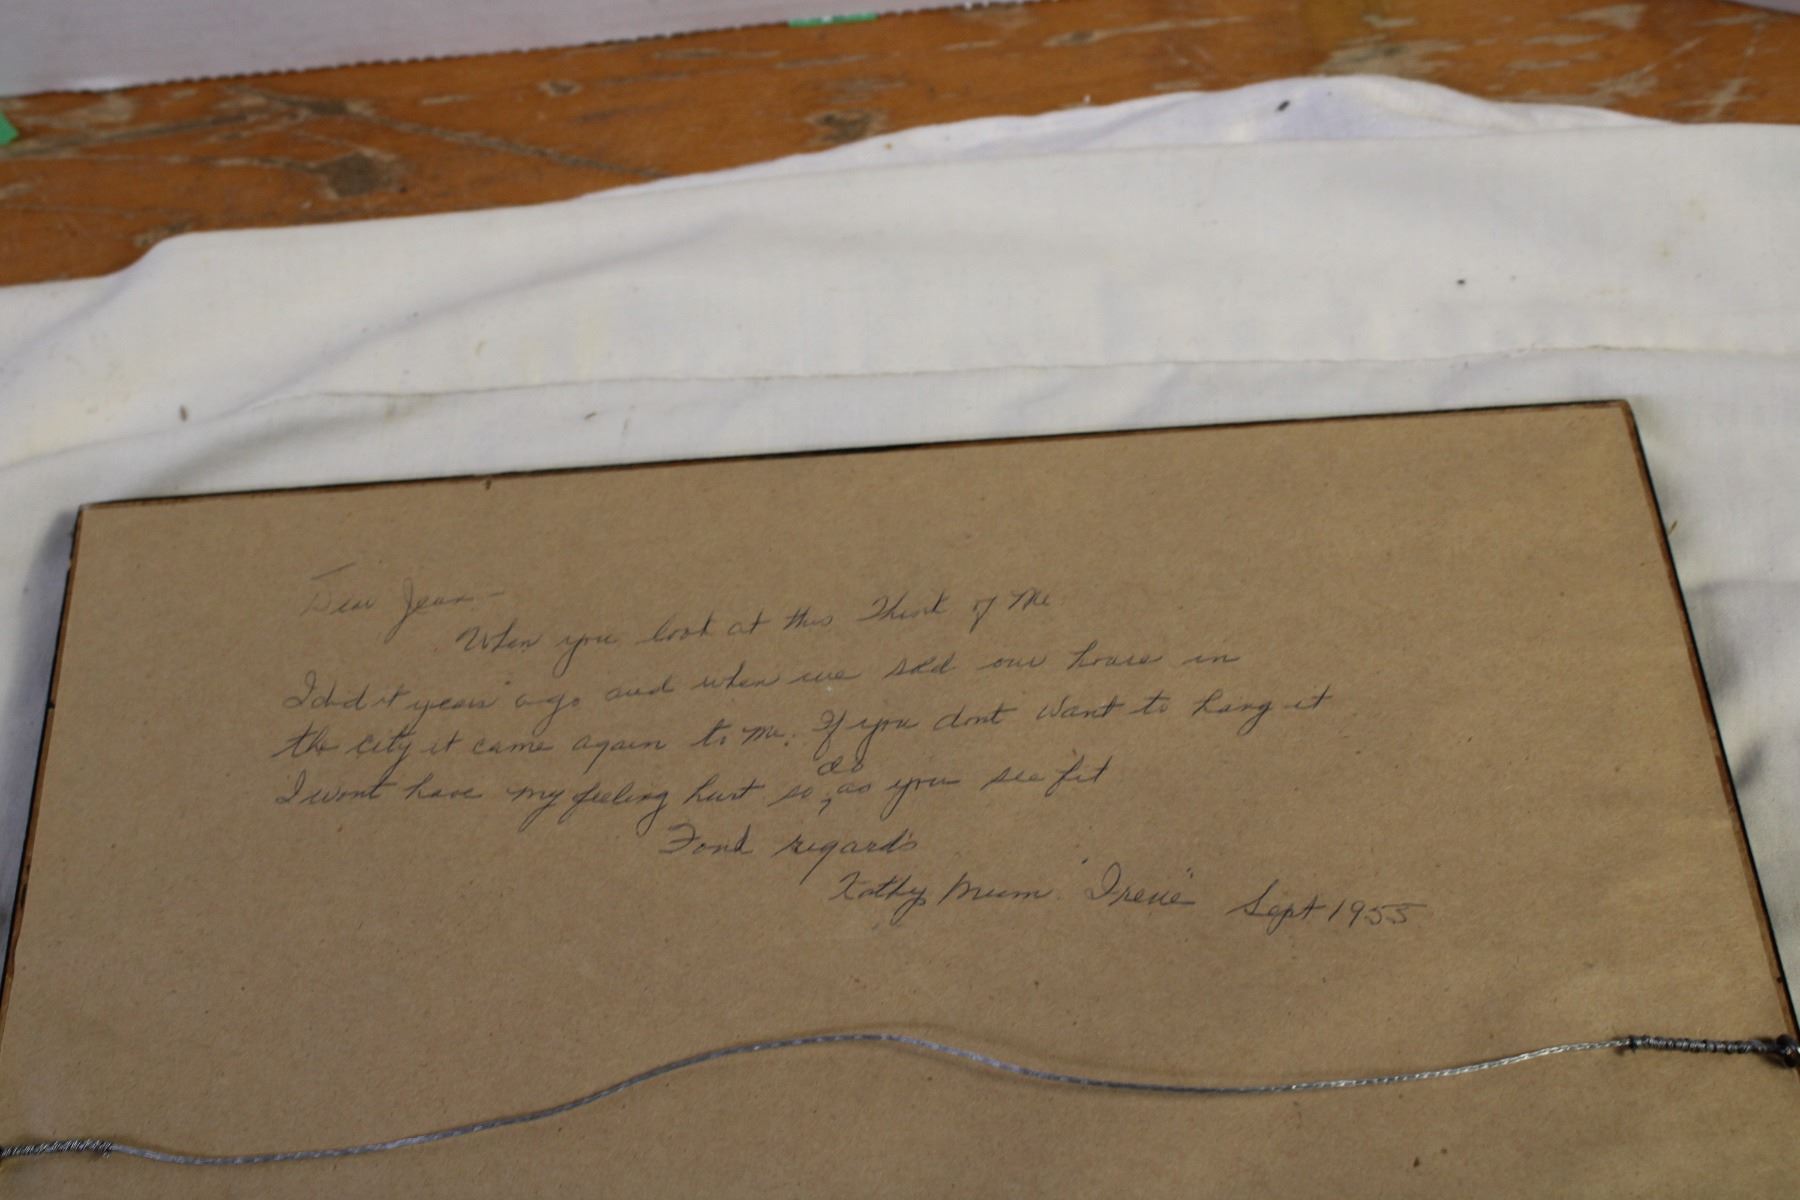 Dear Jean -
When you look at this Think of Me
I did it years ago and when we sold our house in
the city it came again to me. If you dont want to hang it
I wont have my feeling hurt so, do as you see fit
Fond regards
Kathy Mum. "Irene" Sept 1955